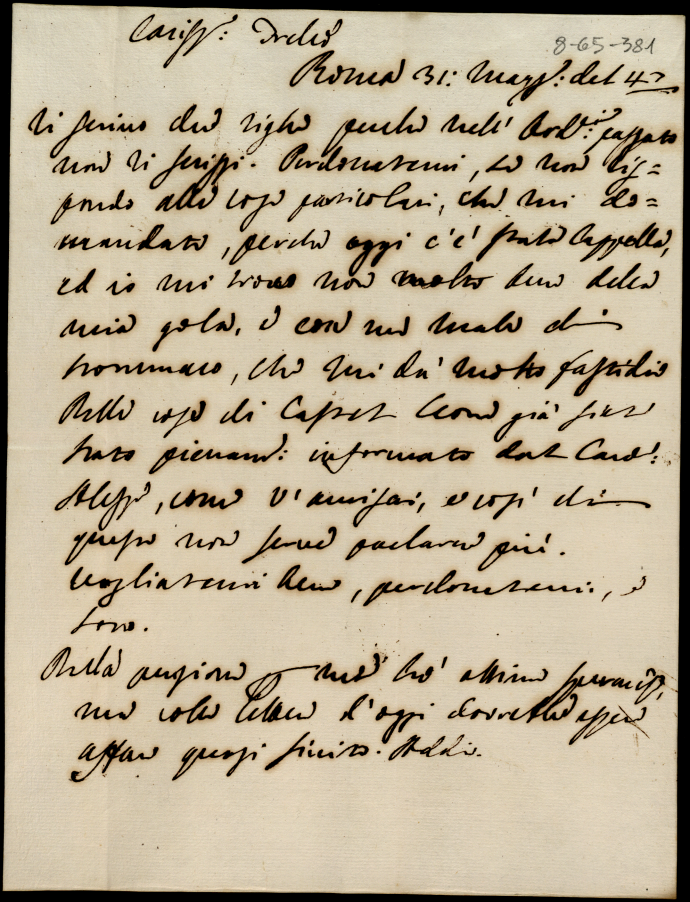 Cariss: Frello
8-65-381
Roma 31: Magg: del 47
Vi scrivo due righe perche nell' Ord: passato
non vi scrissi. Perdonatemi, se non ris=
pondo alle cose particolari, che mi do=
mandate, perche oggi c'e' stata Cappella,
ed io mi trovo non molto bene della
mia gola, e con un male di
stommaco, che mi da' molto fastidio
Delle cose di Castel Leone già siete
stato pienam: informato dal Card:
Aless, come v'avvisai, e così di
questo non serve parlarne più.
Vogliatemi bene, perdonatemi, e
sono.
Della pensione me ho' ottime speranze,
ma colle lettere d'oggi dovrebbe essere
affare quasi finito. Addio.